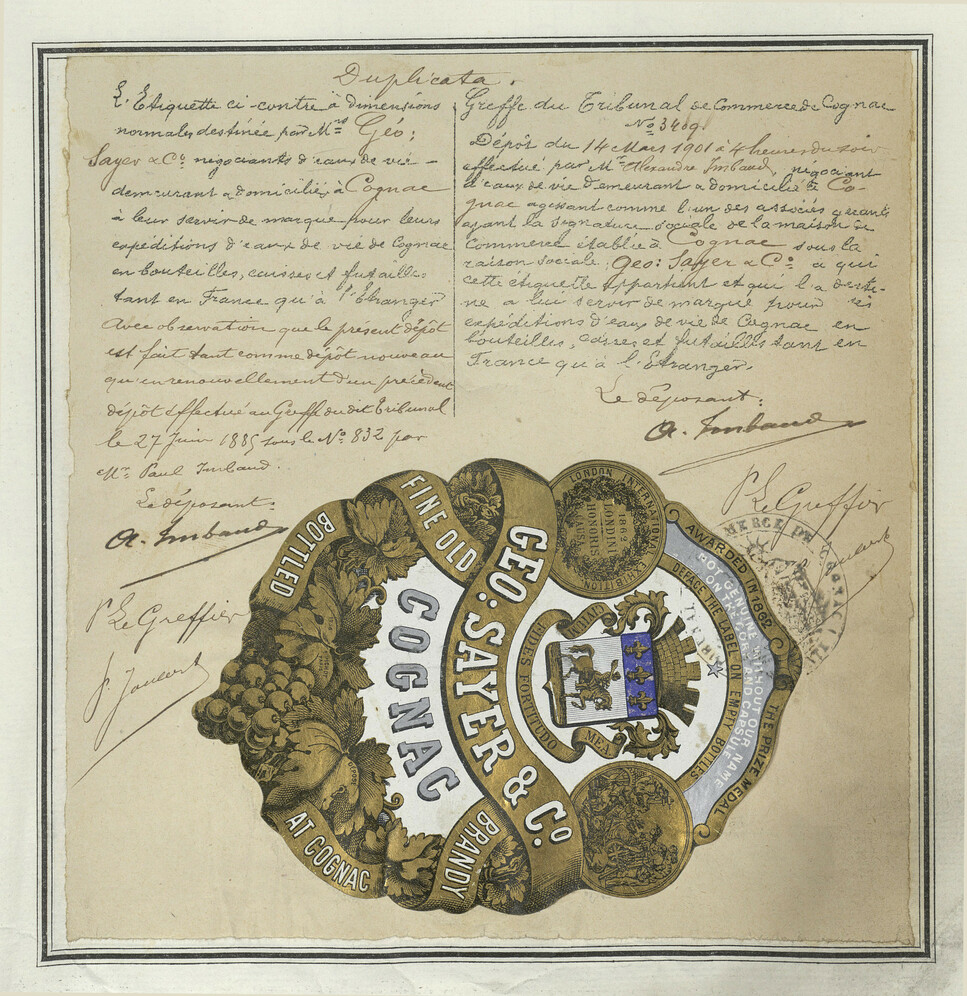 Duplicata.
L'Etiquette ci-contre à dimensions
normales destinée par Mrs Géo:
Sayer & Co négociants d'eaux de vie
demeurant & domiciliés à Cognac
à leur servir de marque pour leurs
expéditions d'eaux de vie de Cognac
en bouteilles, caisses et futailles
tant en France qu'à l'Etranger
Avec observation que le présent dépôt
est fait tant comme dépôt nouveau
qu'en renouvellement d'un précédent
dépôt effectué au Greffe du dit Tribunal
le 27 Juin 1885 sous le No 832 par
Mr Paul Imbaud.
Le déposant:
A. Imbaud
P. Le Greffier
Greffe du Tribunal de Commerce de Cognac
No 3409.
Dépôt du 14 Mars 1901 à 4 heures du soir
effectué par Mr Alexandre Imbaud, négociant
d'eaux de vie demeurant & domicilié à Co-
gnac agissant comme l'un des associés gérants
ayant la signature sociale de la maison de
Commerce établie à Cognac sous la
raison sociale: Geo: Sayer & Co à qui
cette étiquette appartient et qui l'a desti-
né à lui servir de marque pour ses
expéditions d'eaux de vie de Cognac en
bouteilles, caisses et futailles tant en
France qu'à l'Etranger.
Le déposant:
A. Imbaud
P. Le Greffier
BOTTLED
FINE OLD
GEO: SAYER & Co
COGNAC
BRANDY
AT COGNAC
LONDON INTERNATIONAL EXHIBITION
1862
LONDINI
HONORIS
CAUSA
AWARDED IN 1862
THE PRIZE MEDAL
DEFACE THE LABEL ON EMPTY BOTTLES
NOT GENUINE WITHOUT OUR NAME
ON THE CORK AND CAPSULE
FIDES FORTITUDO
MEA
TRIBUNAL